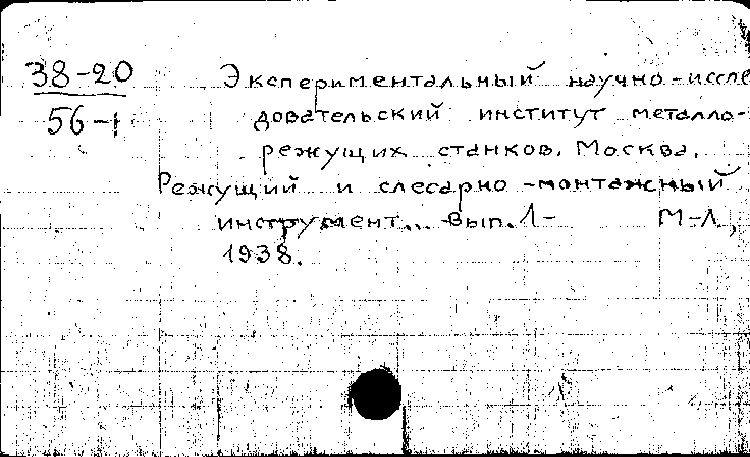 38-20
56-1
Экспериментальный научно-иссле
довательский институт металло-
режущих станков. Москва.
Режущий и слесарно-монтажный
инструмент... Вып. 1- М-Л,
1938.